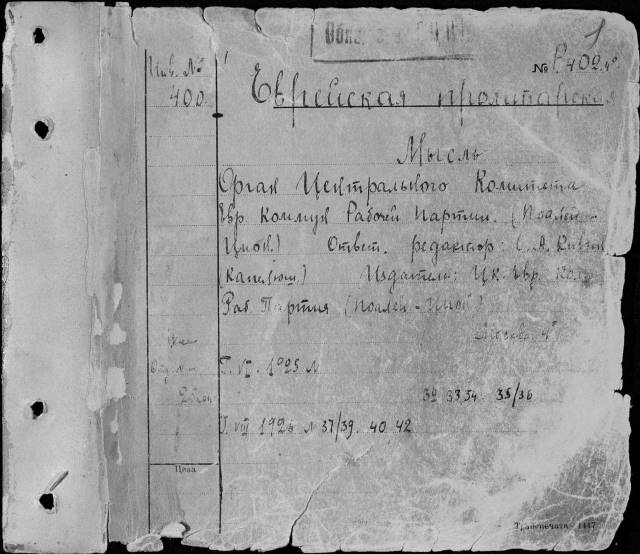 1
№ Р. 402 4°
Инв. №
400.
Еврейская пролитарская
Мысль
Орган Центрального Комитета
Евр. Коммун Рабочей Партии. (Поалей-
Цион.) Ответ. редактор:
Издатель: Цк. Евр. Ком
Раб Партия (Поалей-Цион)
Москва 4°
Г. VII. 1925 №
32 33,34 35/36
Г. VIII 1926 № 37/39. 40. 42
Цена